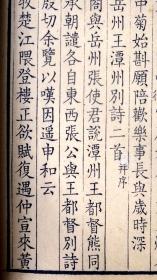 中菊始斟願陪歡樂事長與歲時深
岳州王潭州別詩二首并序
與岳州張使君說潭州王都督熊同
承朝譴各自東西張公與王都督別詩
殷切余覽以嘆因遥申和云
收楚江隈登樓正欲賦復遇仲宣來黄